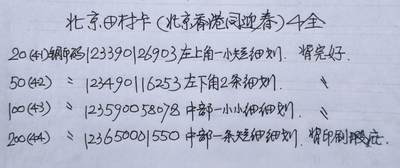 北京田村卡(北京香港同迎春)4全
20(41)钢印码123390126903左上角一小短细划. 背完好.
50(42) 〃 123490116253左下角2条细划. 〃
100(43) 〃 123590058078中部一小小细细划. 〃
200(44) 〃 123650001550中部一条短细细划. 背印刷瑕疵.